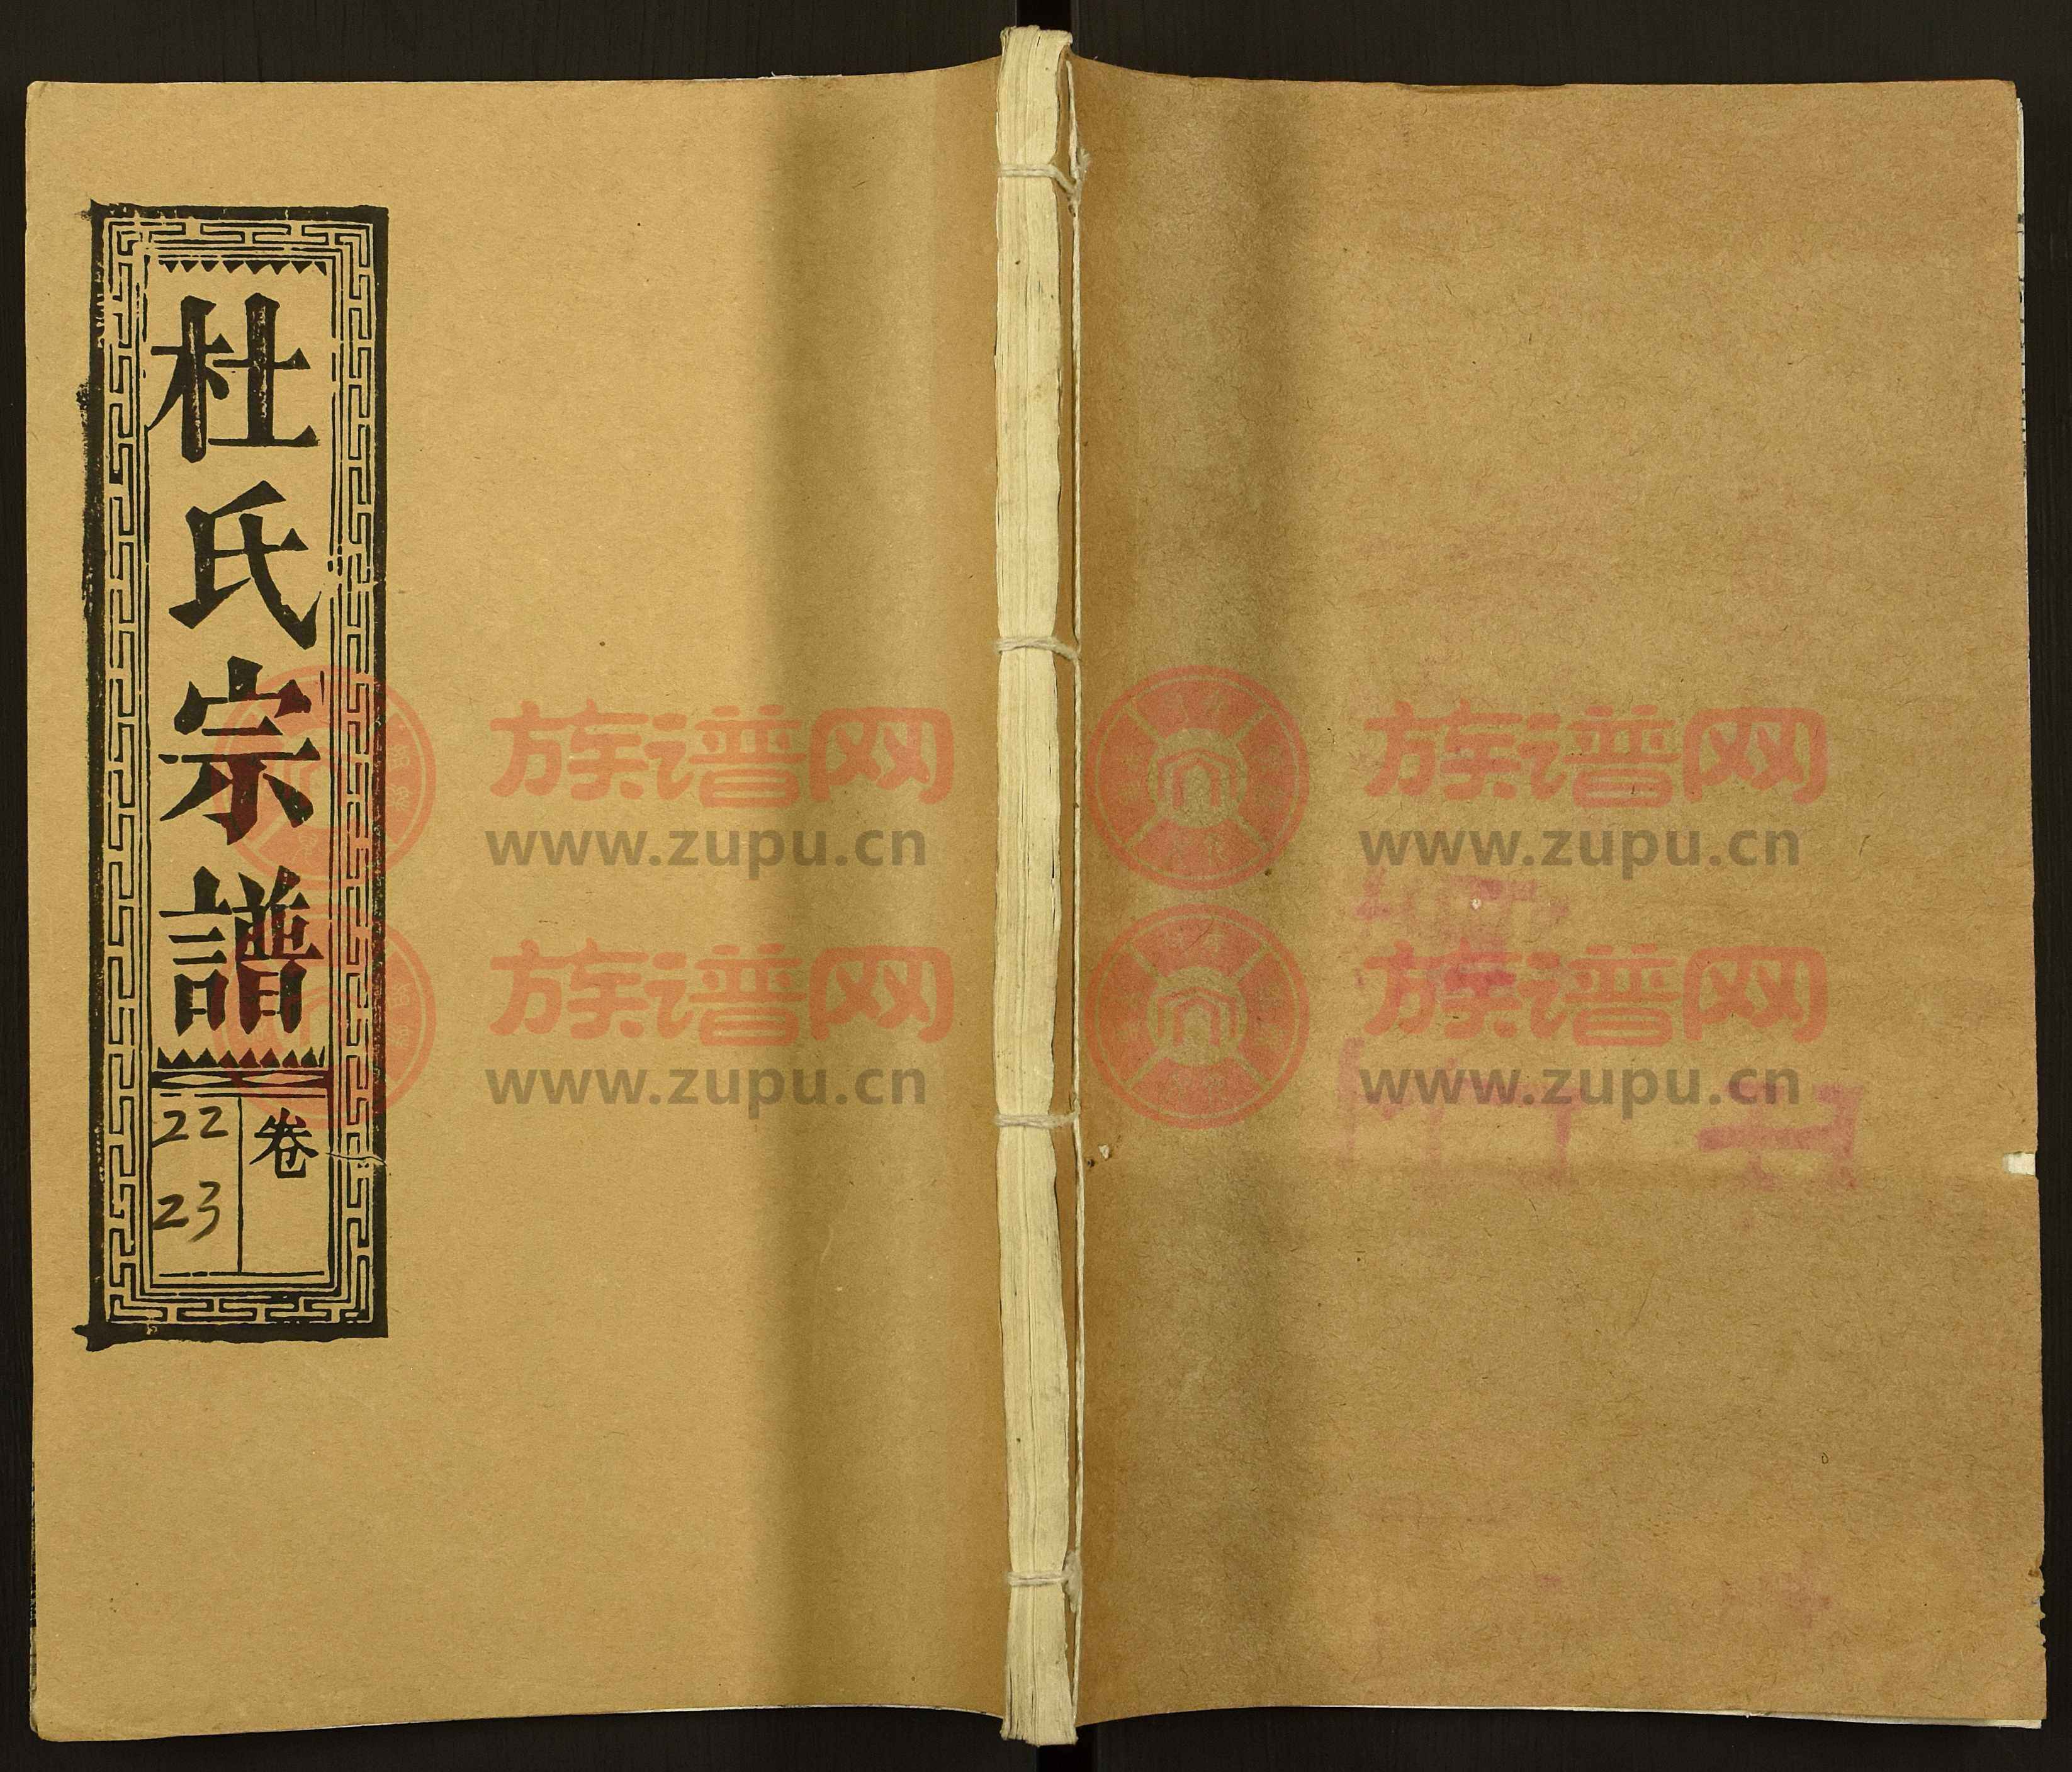 杜氏宗譜
卷
22
23
族谱网
www.zupu.cn
族谱网
www.zupu.cn
族谱网
www.zupu.cn
族谱网
www.zupu.cn